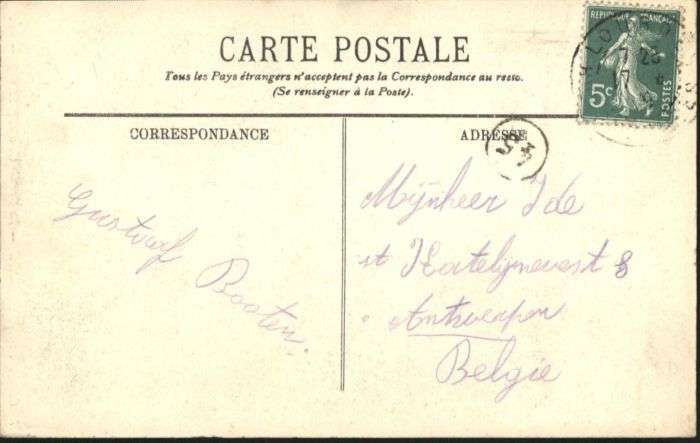 REPUBLIQUE FRANÇAISE
5c
POSTES
CARTE POSTALE
Tous les Pays étrangers n'acceptent pas la Correspondance au recto.
(Se renseigner à la Poste).
CORRESPONDANCE
ADRESSE
Gustaaf Booten.
Mijnheer J de
st Katelijnevest 8
Antwerpen
Belgie